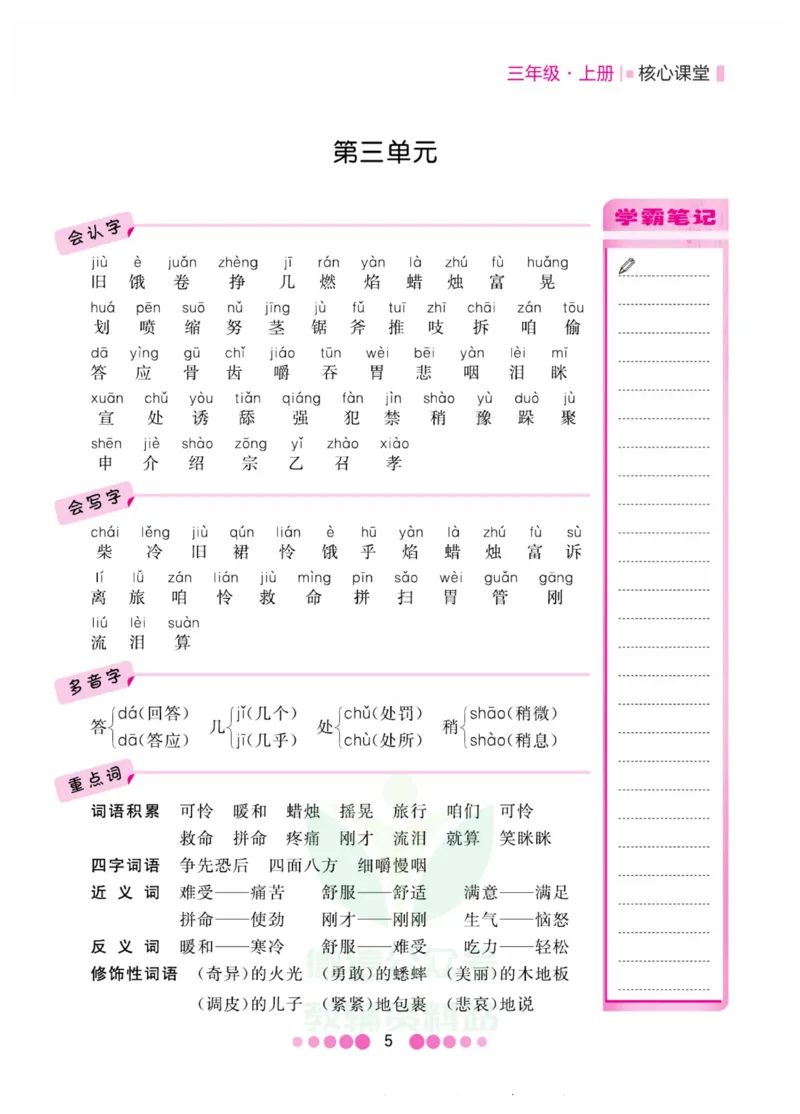 三年级·上册 核心课堂
第三单元
学霸笔记
会认字
jiù è juǎn zhèng jī rán yàn là zhú fù huǎng
旧 饿 卷 挣 几 燃 焰 蜡 烛 富 晃
huá pēn suō nǔ jīng jù fǔ tuī zhī chāi zán tōu
划 喷 缩 努 茎 锯 斧 推 吱 拆 咱 偷
dā yìng gū chǐ jiáo tūn wèi bēi yàn lèi mī
答 应 骨 齿 嚼 吞 胃 悲 咽 泪 眯
xuān chǔ yòu tiǎn qiáng fàn jìn shào yù duò jù
宣 处 诱 舔 强 犯 禁 稍 豫 跺 聚
shēn jiè shào zōng yǐ zhào xiào
申 介 绍 宗 乙 召 孝
会写字
chái lěng jiù qún lián è hū yàn là zhú fù sù
柴 冷 旧 裙 怜 饿 乎 焰 蜡 烛 富 诉
lí lǚ zán lián jiù mìng pīn sǎo wèi guǎn gāng
离 旅 咱 怜 救 命 拼 扫 胃 管 刚
liú lèi suàn
流 泪 算
多音字
答{dá(回答) dā(答应) 几{jǐ(几个) jī(几乎) 处{chǔ(处罚) chù(处所) 稍{shāo(稍微) shào(稍息)
重点词
词语积累 可怜 暖和 蜡烛 摇晃 旅行 咱们 可怜
救命 拼命 疼痛 刚才 流泪 就算 笑眯眯
四字词语 争先恐后 四面八方 细嚼慢咽
近义词 难受——痛苦 舒服——舒适 满意——满足
拼命——使劲 刚才——刚刚 生气——恼怒
反义词 暖和——寒冷 舒服——难受 吃力——轻松
修饰性词语 (奇异)的火光 (勇敢)的蟋蟀 (美丽)的木地板
(调皮)的儿子 (紧紧)地包裹 (悲哀)地说
微信公众号
教辅资料站
5